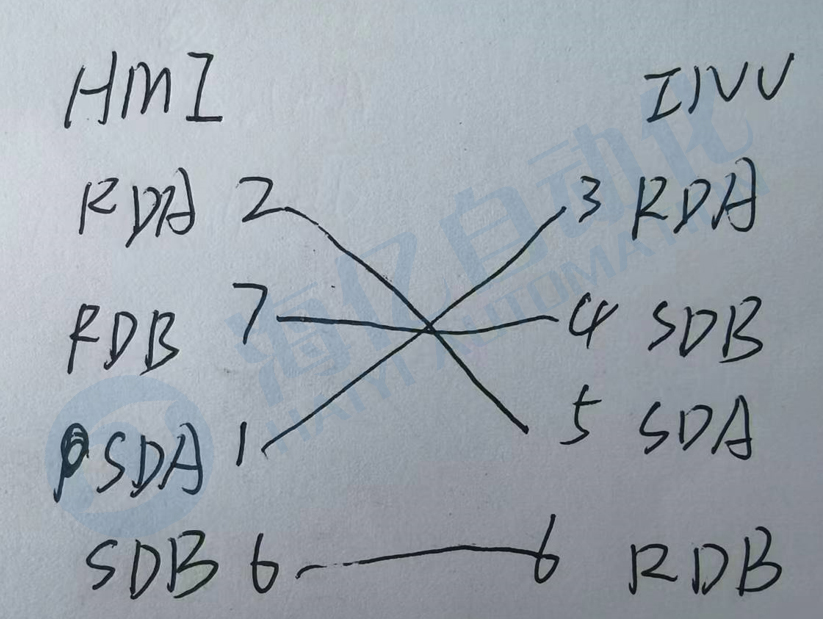 HMI INV
RDA 2 3 RDA
RDB 7 4 SDB
SDA 1 5 SDA
SDB 6 6 RDB
海亿自动化
HAIYI AUTOMATION